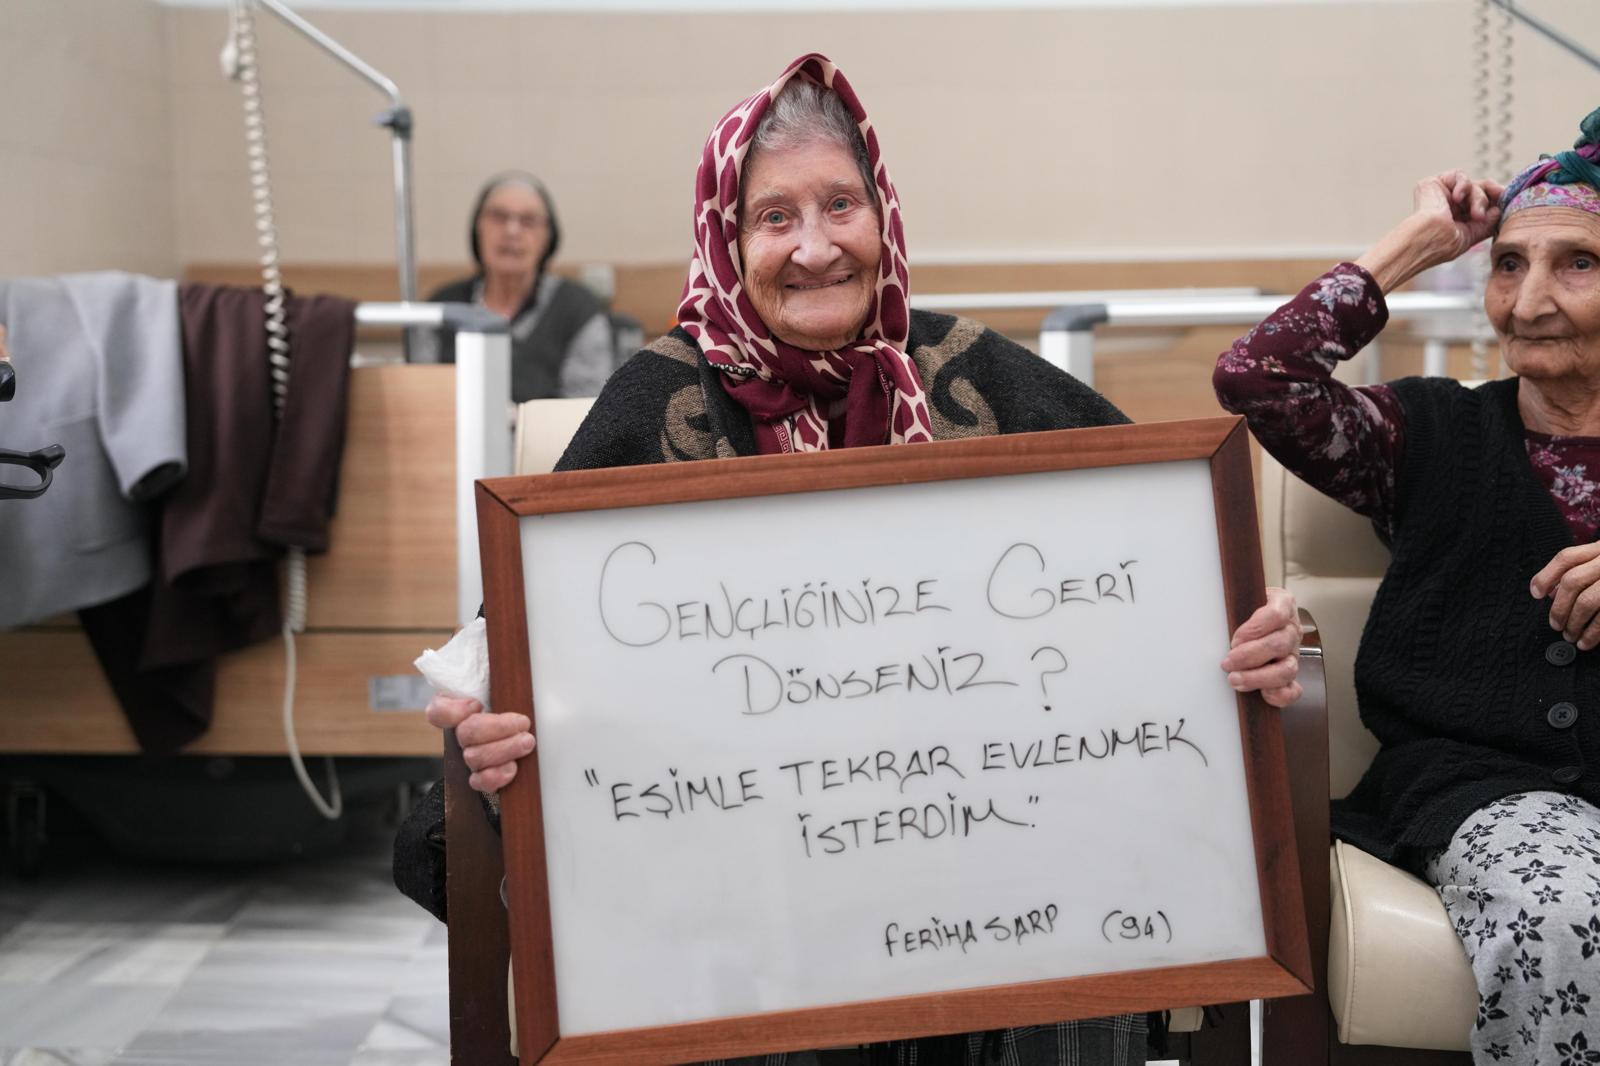 GENÇLİĞİNİZE GERİ
DÖNSENİZ?
"EŞİMLE TEKRAR EVLENMEK
İSTERDİM."
FERİHA SARP (94)